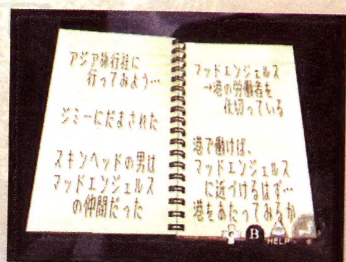 アジア旅行社に
行ってみよう…
ジミーにだまされた
スキンヘッドの男は
マッドエンジェルス
の仲間だった
マッドエンジェルス
→港の労働者を
仕切っている
港で働けば、
マッドエンジェルス
に近づけるはず…
港をあたってみるか
B
HELP